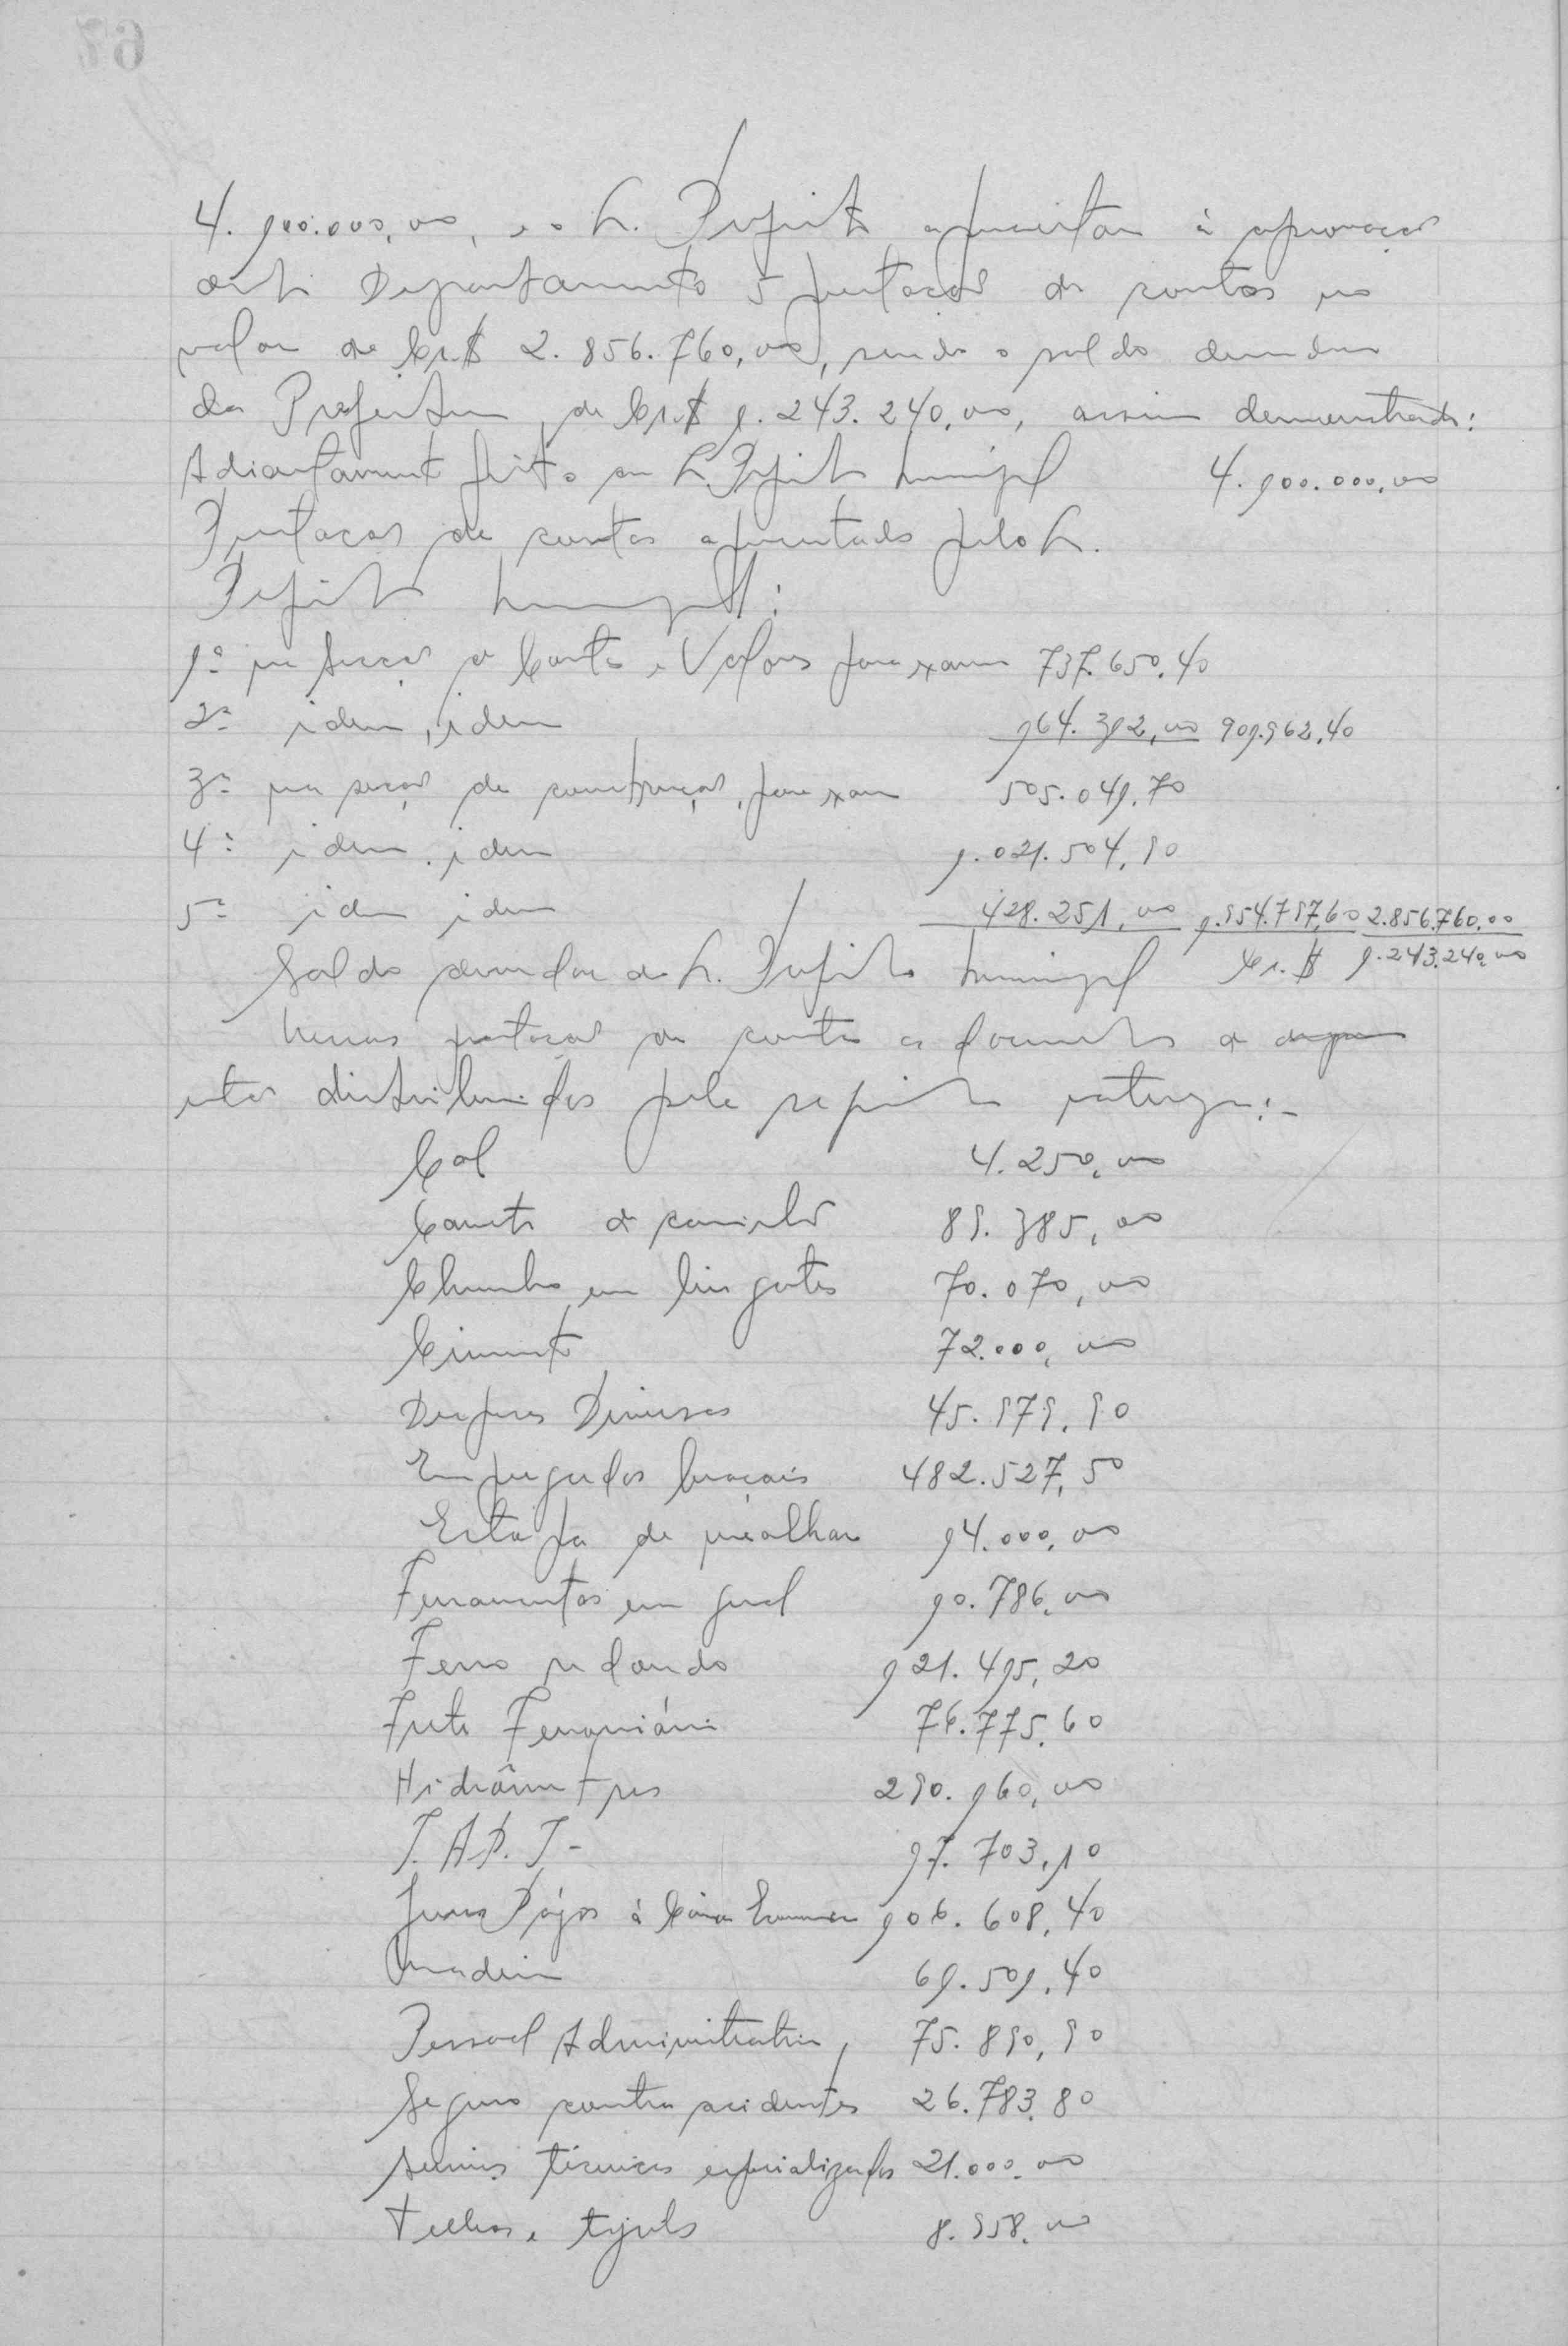 4.100.000,00, e o Sr. Prefeito apresentou à aprovação
deste Departamento 5 prestações de contas no
valor de Cr.$ 2.856.760,00, sendo o saldo devedor
da Prefeitura de Cr.$ 1.243.240,00, assim demonstrado:
Adiantamento feito ao Sr. Prefeito Municipal 4.100.000,00
Prestações de contas apresentadas pelo Sr.
Prefeito Municipal:
1ª na Secção de Contas e Valores para exame 737.650,40
2ª idem, idem 164.312,00 901.962,40
3ª na secção de construção, para exame 505.041,70
4ª idem, idem 1.021.504,90
5ª idem idem 428.251,00 1.954.797,60 2.856.760,00
Saldo devedor do Sr. Prefeito Municipal Cr.$ 1.243.240,00
Nessas prestações de contas os documentos de
estão distribuidos pela seguinte
Cal 4.250,00
Carreto de caminhão 89.385,00
Chumbo em lingotes 70.070,00
Cimento 72.000,00
Despesas Diversas 45.979,90
Empregados braçais 482.527,50
Estopa de mealhar 14.000,00
Ferramentas em geral 10.786,00
Ferro redondo 121.415,20
Frete Ferroviário 76.775,60
Hidrômetros 290.160,00
I.A.P.I- 17.703,10
Juros Pagos à Caixa Economica 106.608,40
Madeira 61.501,40
Pessoal Administrativo 75.890,90
Seguro contra acidentes 26.783,80
Serviços técnicos especializados 21.000,00
Telhas e tijolos 8.958,00